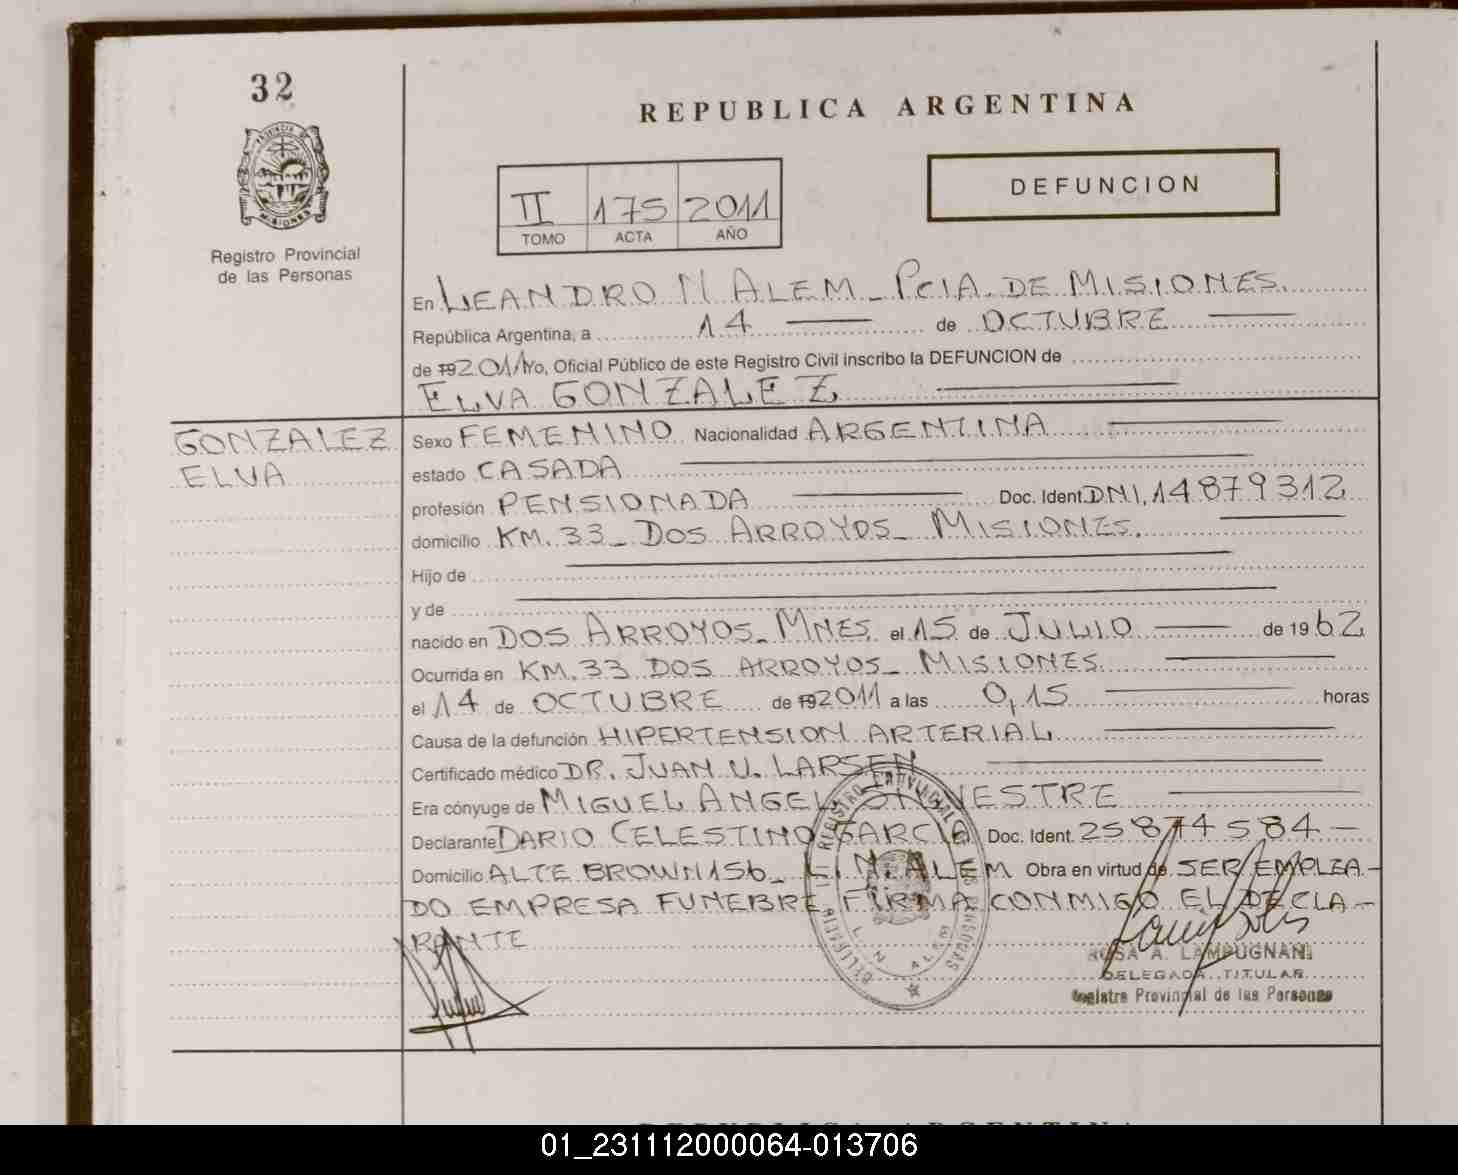 32
REPUBLICA ARGENTINA
DEFUNCION
II 175 2011
TOMO ACTA AÑO
Registro Provincial
de las Personas
En LEANDRO N ALEM - PCIA. DE MISIONES.
República Argentina, a 14 de OCTUBRE
de 192011 Yo, Oficial Público de este Registro Civil inscribo la DEFUNCION de
ELVA GONZALEZ
GONZALEZ
ELVA
Sexo FEMENINO Nacionalidad ARGENTINA
estado CASADA
profesión PENSIONADA Doc. Ident. DNI, 14879312
domicilio KM. 33 - DOS ARROYOS - MISIONES.
Hijo de
y de
nacido en DOS ARROYOS - MNES. el 15 de JULIO de 1962
Ocurrida en KM. 33 DOS ARROYOS - MISIONES.
el 14 de OCTUBRE de 192011 a las 0,15 horas
Causa de la defunción HIPERTENSION ARTERIAL
Certificado médico DR. JUAN U. LARSEN
Era cónyuge de MIGUEL ANGEL
Declarante DARIO CELESTINO GARCIA Doc. Ident. 25874584 -
Domicilio ALTE BROWN 156 - L. N. ALEM Obra en virtud de SER EMPLEA-
DO EMPRESA FUNEBRE FIRMA CONMIGO EL DECLA-
RANTE
ROSA A. LAMPUGNANI
DELEGADA TITULAR
Registro Provincial de las Personas
REPUBLICA ARGENTINA
01_231112000064-013706